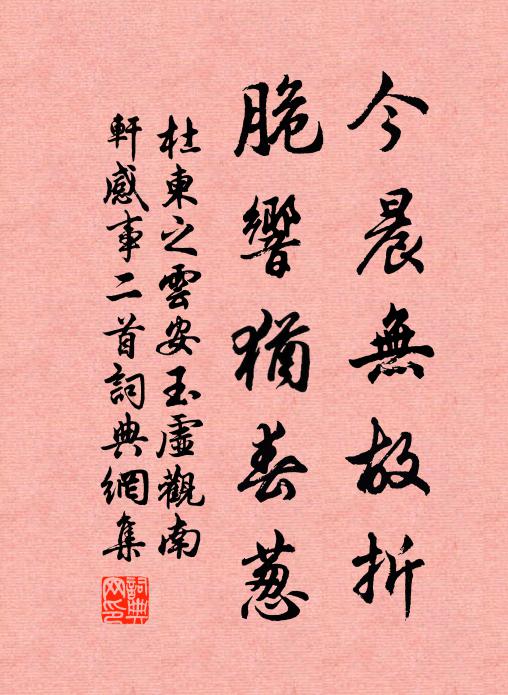 今晨無故折
脆響猶春蔥
杜東之雲安玉虛觀南
軒感事二首詞典網集
詞典网印